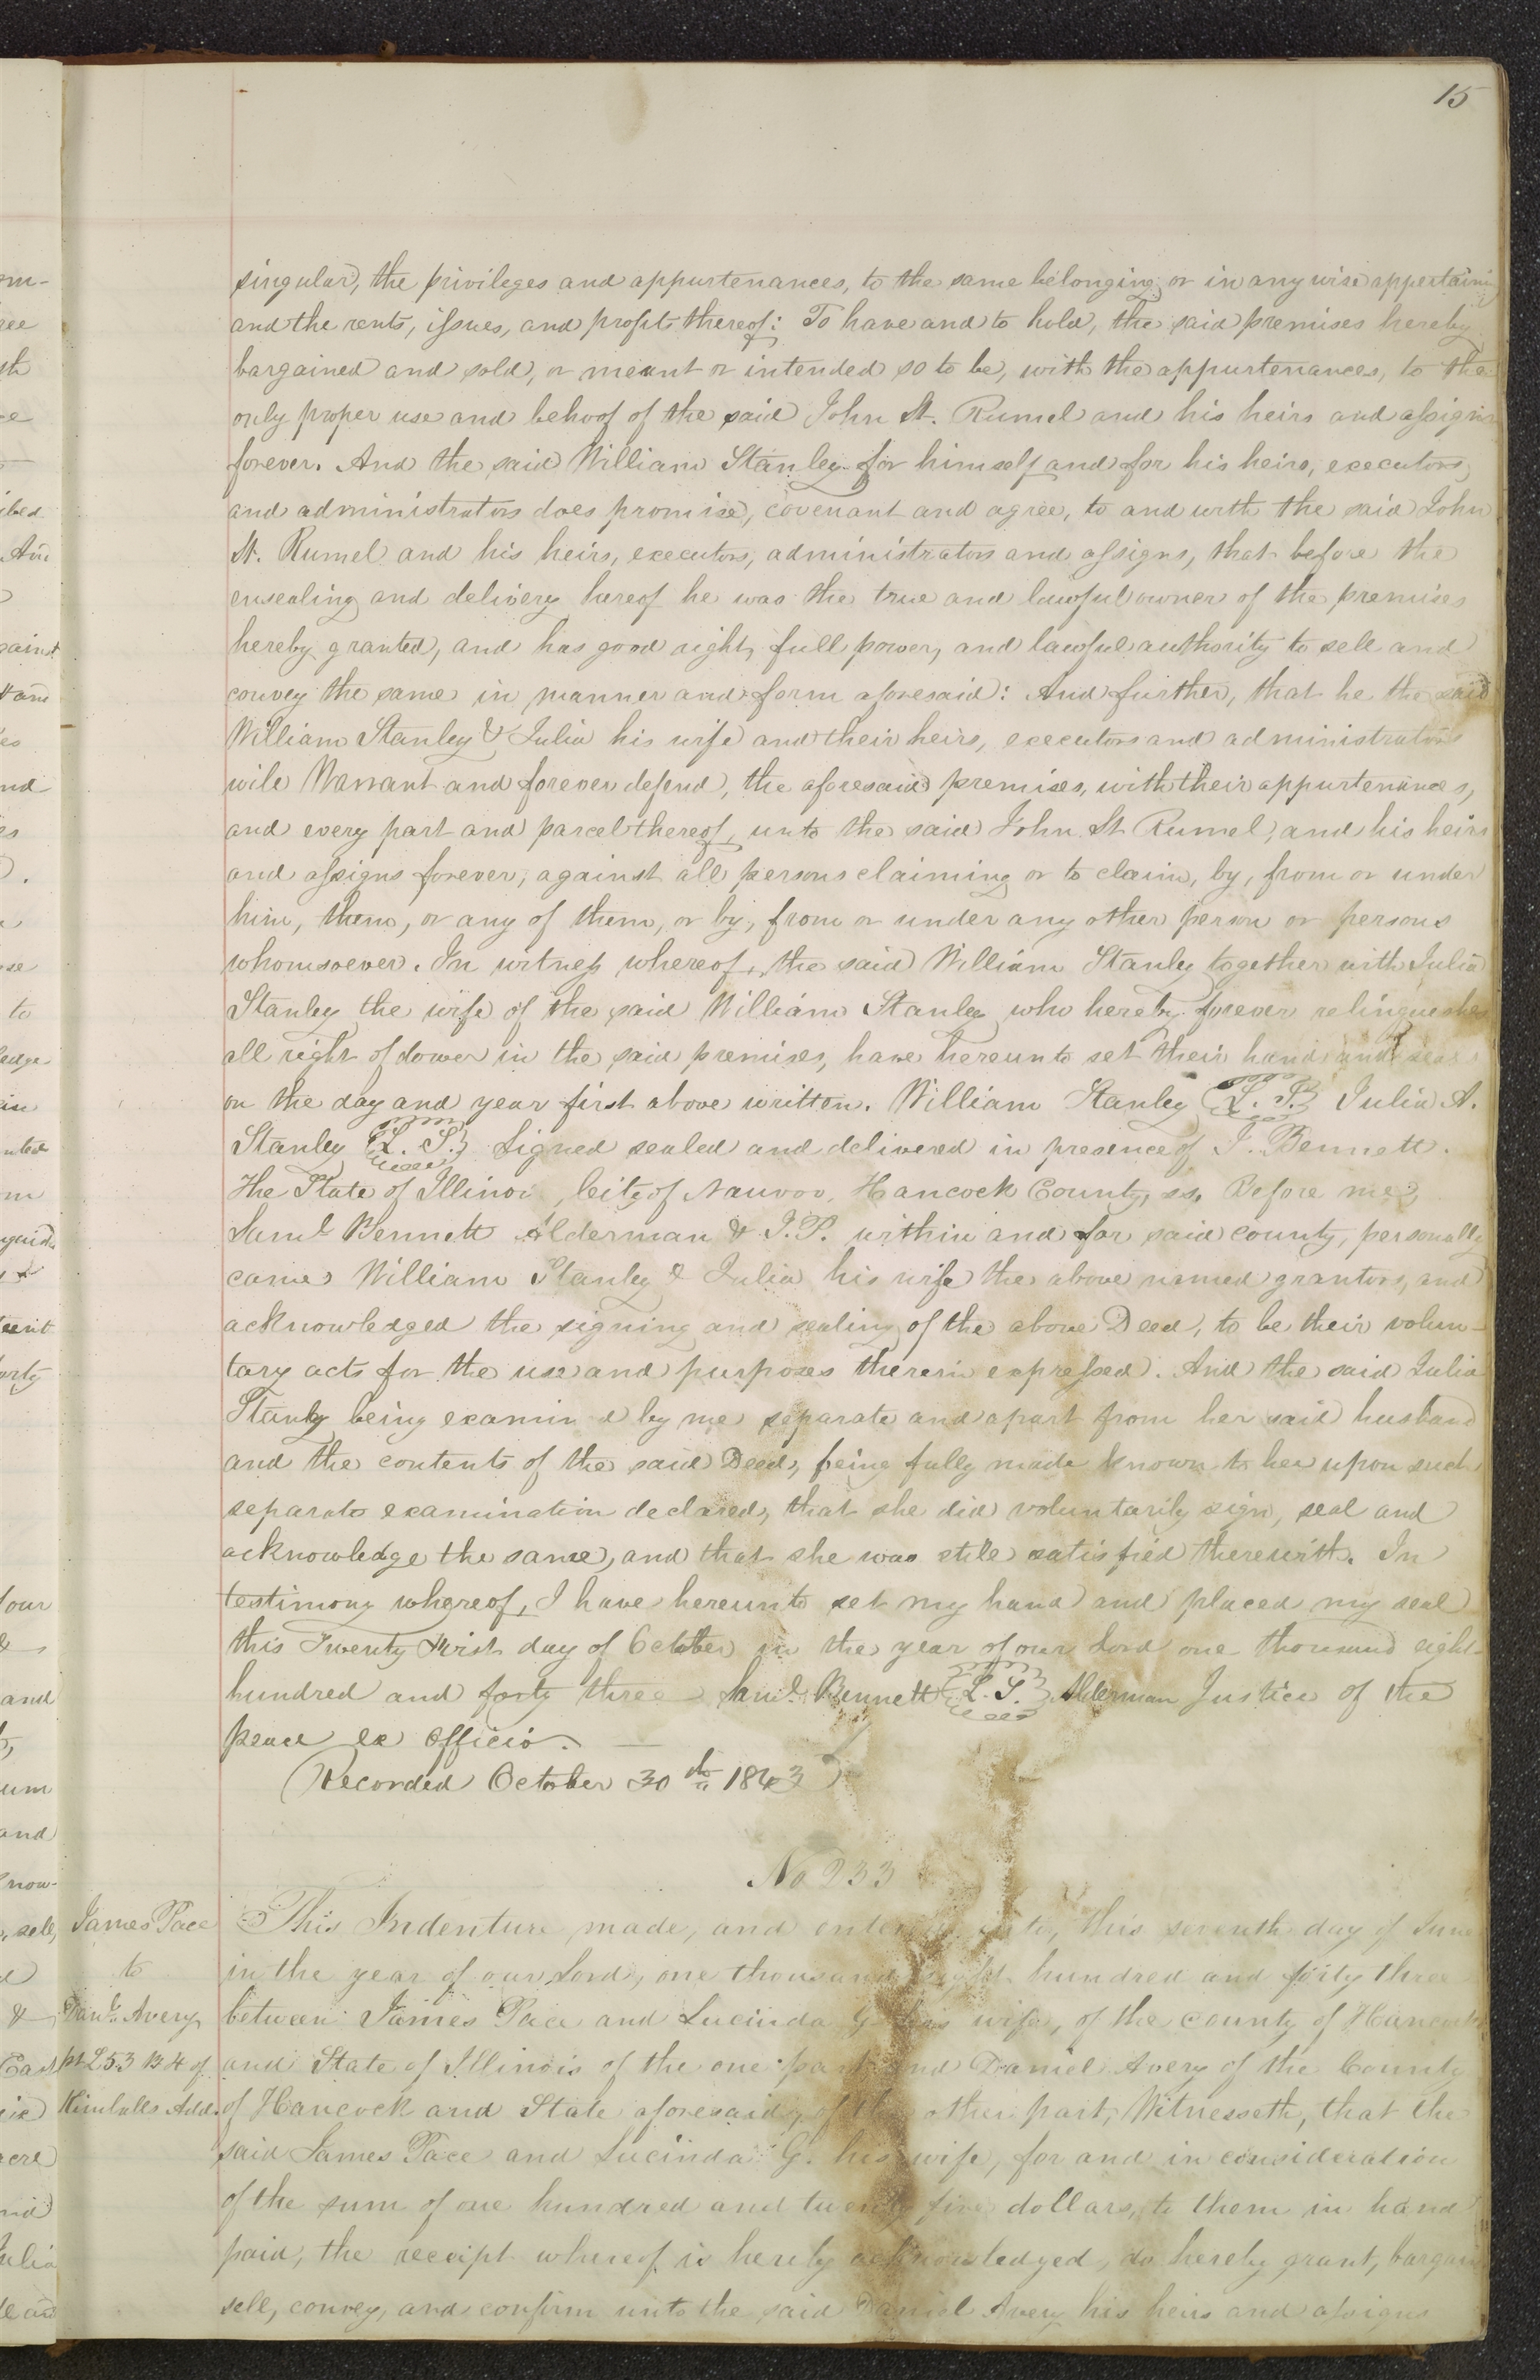 15
singular, the privileges and appurtenances, to the same belonging or in any wise appertaining
and the rents, issues, and profits thereof: To have and to hold, the said premises hereby
bargained and sold, or meant or intended so to be, with the appurtenances, to the
only proper use and behoof of the said John H. Rumel and his heirs and assigns
forever. And the said William Stanley for himself and for his heirs, executors,
and administrators does promise, covenant and agree, to and with the said John
H. Rumel and his heirs, executors, administrators and assigns, that before the
ensealing and delivery hereof he was the true and lawful owner of the premises
hereby granted, and has good right, full power, and lawful authority to sell and
convey the same in manner and form aforesaid: And further, that he the said
William Stanley & Julia his wife and their heirs, executors and administrators
will Warrant and forever defend, the aforesaid premises, with their appurtenances,
and every part and parcel thereof, unto the said John H Rumel, and his heirs
and assigns forever, against all persons claiming or to claim, by, from or under
him, them, or any of them, or by, from or under any other person or persons
whomsoever. In witness whereof, the said William Stanley together with Julia
Stanley the wife of the said William Stanley who hereby forever relinqueshes
all right of dower in the said premises, have hereunto set their hands and seals
on the day and year first above written. William Stanley (L. S.) Julia A.
Stanley (L. S.) Signed sealed and delivered in presence of S. Bennett.
The State of Illinoi, City of Nauvoo, Hancock County, ss. Before me,
Saml Bennett Alderman & J.P. within and for said county, personally
came William Stanley & Julia his wife the above named grantors, and
acknowledged the signing and sealing of the above Deed, to be their volun-
tary acts for the use and purposes therein expressed. And the said Julia
Stanly being examin d by me separate and apart from her said husband
and the contents of the said Deed, being fully made known to her upon such
separate examination declared, that she did voluntarily sign, seal and
acknowledge the same, and that she was still satisfied therewith. In
testimony whereof, I have hereunto set my hand and placed my seal
this Twenty First day of October in the year of our Lord one thousand eight
hundred and forty three Saml. Bennett (L. S.) Alderman Justice of the
peace ex officio. —
(Recorded October 30th 1843)
No 233
James Pace
to
Danl. Avery
pt L 53 B 4 of
Kimballs Add.
This Indenture made, and entered into, this seventh day of June
in the year of our Lord, one thousand eight hundred and forty three
between James Pace and Lucinda G. his wife, of the county of Hancock
and State of Illinois of the one part and Daniel Avery of the County
of Hancock and State aforesaid, of the other part, Witnesseth, that the
said James Pace and Lucinda G. his wife, for and in consideration
of the sum of one hundred and twenty five dollars, to them in hand
paid, the receipt whereof is hereby acknowledged, do hereby grant, bargain
sell, convey, and confirm unto the said Daniel Avery his heirs and assigns